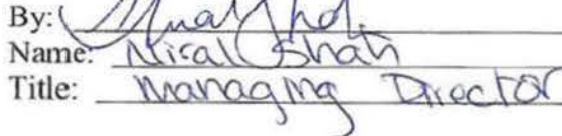 By:
Name: Niral Shah
Title: Managing Director